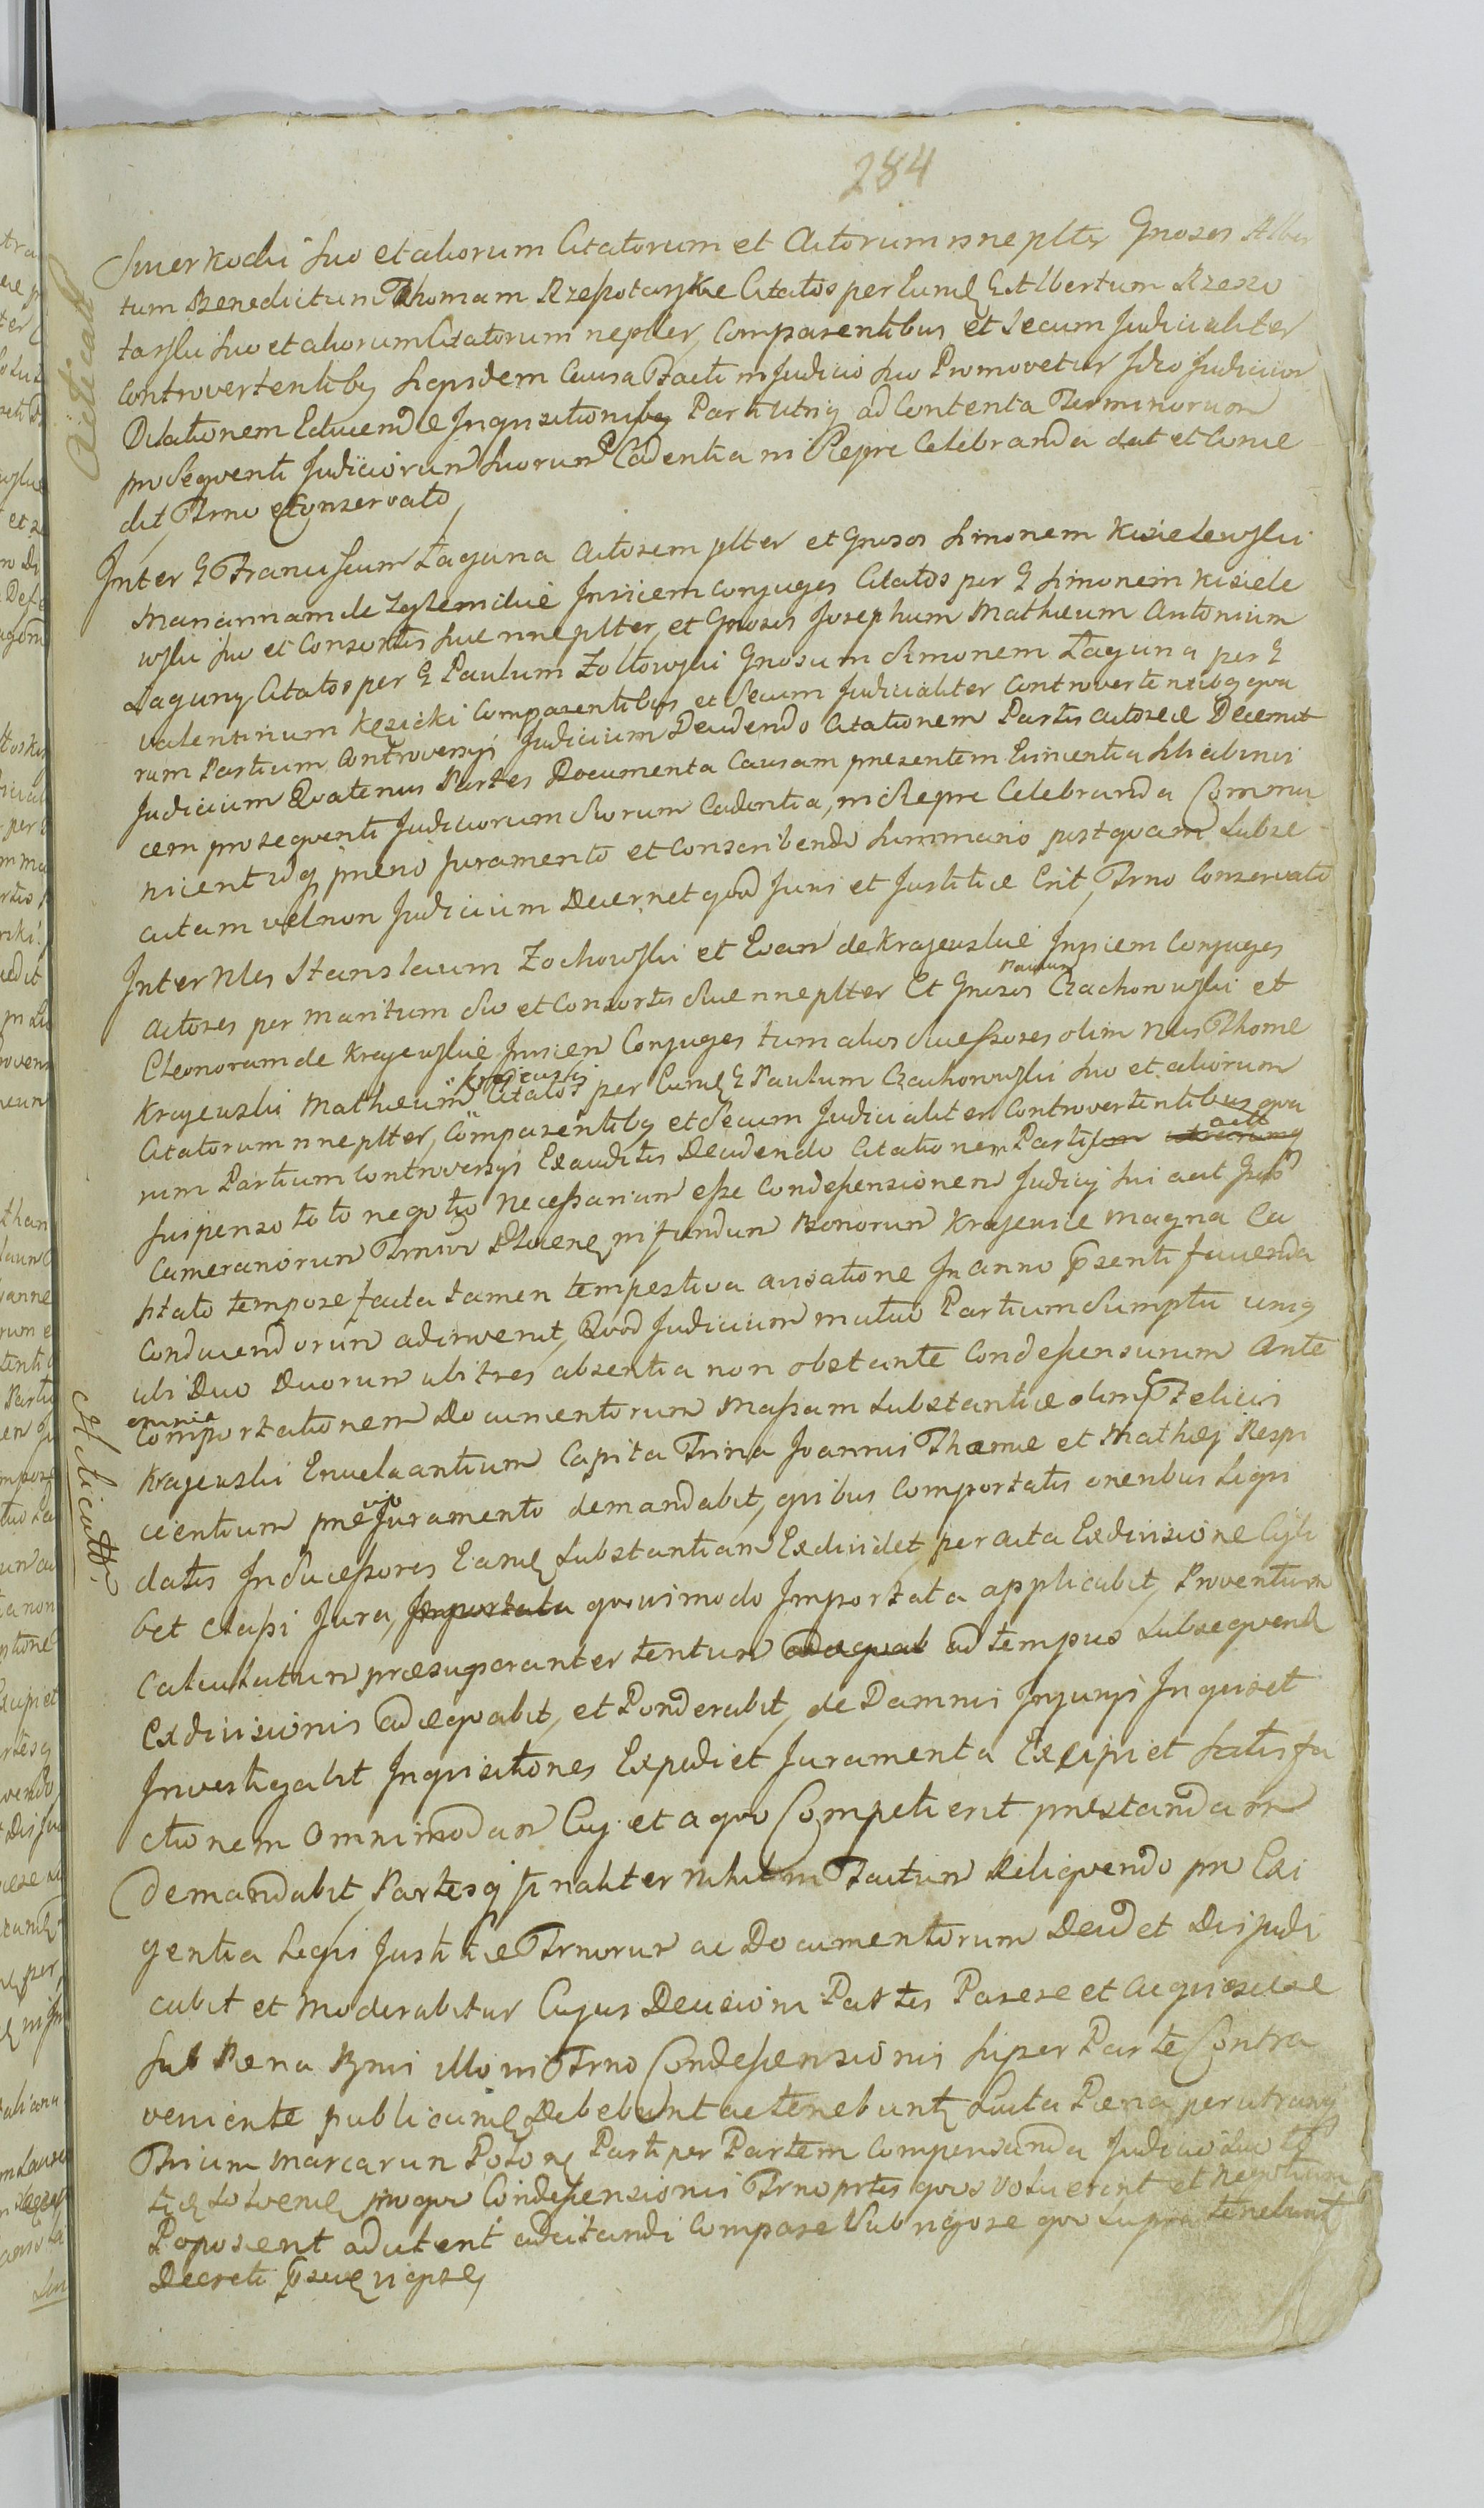 284
Smerkochi suo et aliorum Citatorum et Actorum nne plter Gnosos Alber
tum Benedictum Thomam Rzepotayskie Citatos per Eund G Albertum Rzepo
tayski suo et aliorum Citatorum ne plter, Comparentibus et secum Judicialiter
Controvertentibg siquidem Causa Facti in Judicio suo Promovetur Ideo Judicium
Dilationem Educendae Inquisitionibg Parti utriq ad Contenta Terminorum
pro Sequenti Judiciorum suorum Cadentia in Repre Celebranda dat et Conce
dit, Trno Conservato,
Inter G Franciscum Laguna Actorem plter et Gnosos Simonem Kisielewski
Mariannam de Zglemickie Invicem Conjuges Citatos per G Simonem Kisiele
wski suo et Consortis suae nne plter, et Gnosos Josephum Mathaeum Antonium
Laguny Citatos per G Paulum Zoltowski Gnosum Simonem Laguna per G
Valentinum Kęzicki Comparentibus et secum Judicialiter Controvertentibg quo
rum Partium Controversys Judicium Decidendo Citationem Partis Actoreae Decernit
Judicium Quatenus Partes Documenta Causam presentem Evincentia sibi abinvi
cem pro sequenti Judiciorum suorum Cadentia, in Repre Celebranda Commu
nicent idq previo Juramento et Conscribendo Summario post quam subse
cutam vel non Judicium Decernet quod Juri et Justitiae Erit, Trno Conservato
Inter Nles Stanslaum Zochowski et Evam de Krajewskie Invicem Conjuges
Actores per Maritum suo et Consortis suae nne plter Et Gnosos Paulum Czachorowski et
Eleonoram de Krajewskie Invicem Conjuges tum alios Successores olim Nlis Thome
Krajewski Mathaeum Krajewski Citatos per Eund G Paulum Czachorowski suo et aliorum
Citatorum nne plter, Comparentibg et secum Judicialiter Controvertentibus quo
rum Partium Controversys Exauditis Decidendo Citationem Partis
suspenso toto negotio Necessarium esse Condescensionem Judicij sui aut
Camerariorum Trnum in fundum Bonorum Krajewice magna Ca
ptato tempore facta tamen tempestiva avisatione In anno psenti
Conducendorum adinvenit, Quod Judicium mutuo Partium Sumptu unig
ubi Duo Duorum ubi tres absentia non obstante Condescensurum Ante
omnia Comportationem Documentorum Massam Substantiae olim G Felicis
Krajewski Enucleantium Capita Trina Joannis Thomae et Mathaej Respi
cientium previo Juramento demandabit, quibus Comportatis oneribus Liqui
datis In Successores Eand Substantiam Exdividet, per acta Exdivisione Cuili
bet classi Jura, Importata quovismodo Importata applicabit, Proventum
Calculatum praesuperanter tentum adaequat ad tempus subsequend
Exdivisionis adaequabit, et Ponderabit, de Damnis Injuryis Inquiret
Investigabit Inquisitiones Expediet Juramenta Excipiet satisfa
ctionem Omnimodam Cuj et a quo Competierit prestandam
demandabit, Partesq finaliter nihil in Factum Reliquendo pro Exi
gentia Legis Justitiae Trnorum ac Documentorum Decidet Disjudi
cabit et Moderabitur Cujus Decisioni Partes Parere et acquiescere
sub Poena Bnis illo in Trno Condescensionis super Parte Contra
veniente publicand Debebunt ac tenebunt Luita Poena per utramq
Trium Marcarum Polon Parti per Partem Compensanda Judicio suo
solvend pro quo Condescensionis Trno ptes quos voluerint et Negotium
Poposcent adcitent adcitandi Compare sub rigore quo supra tenebunt
Decreti
Aidicatt
Aidicatt.